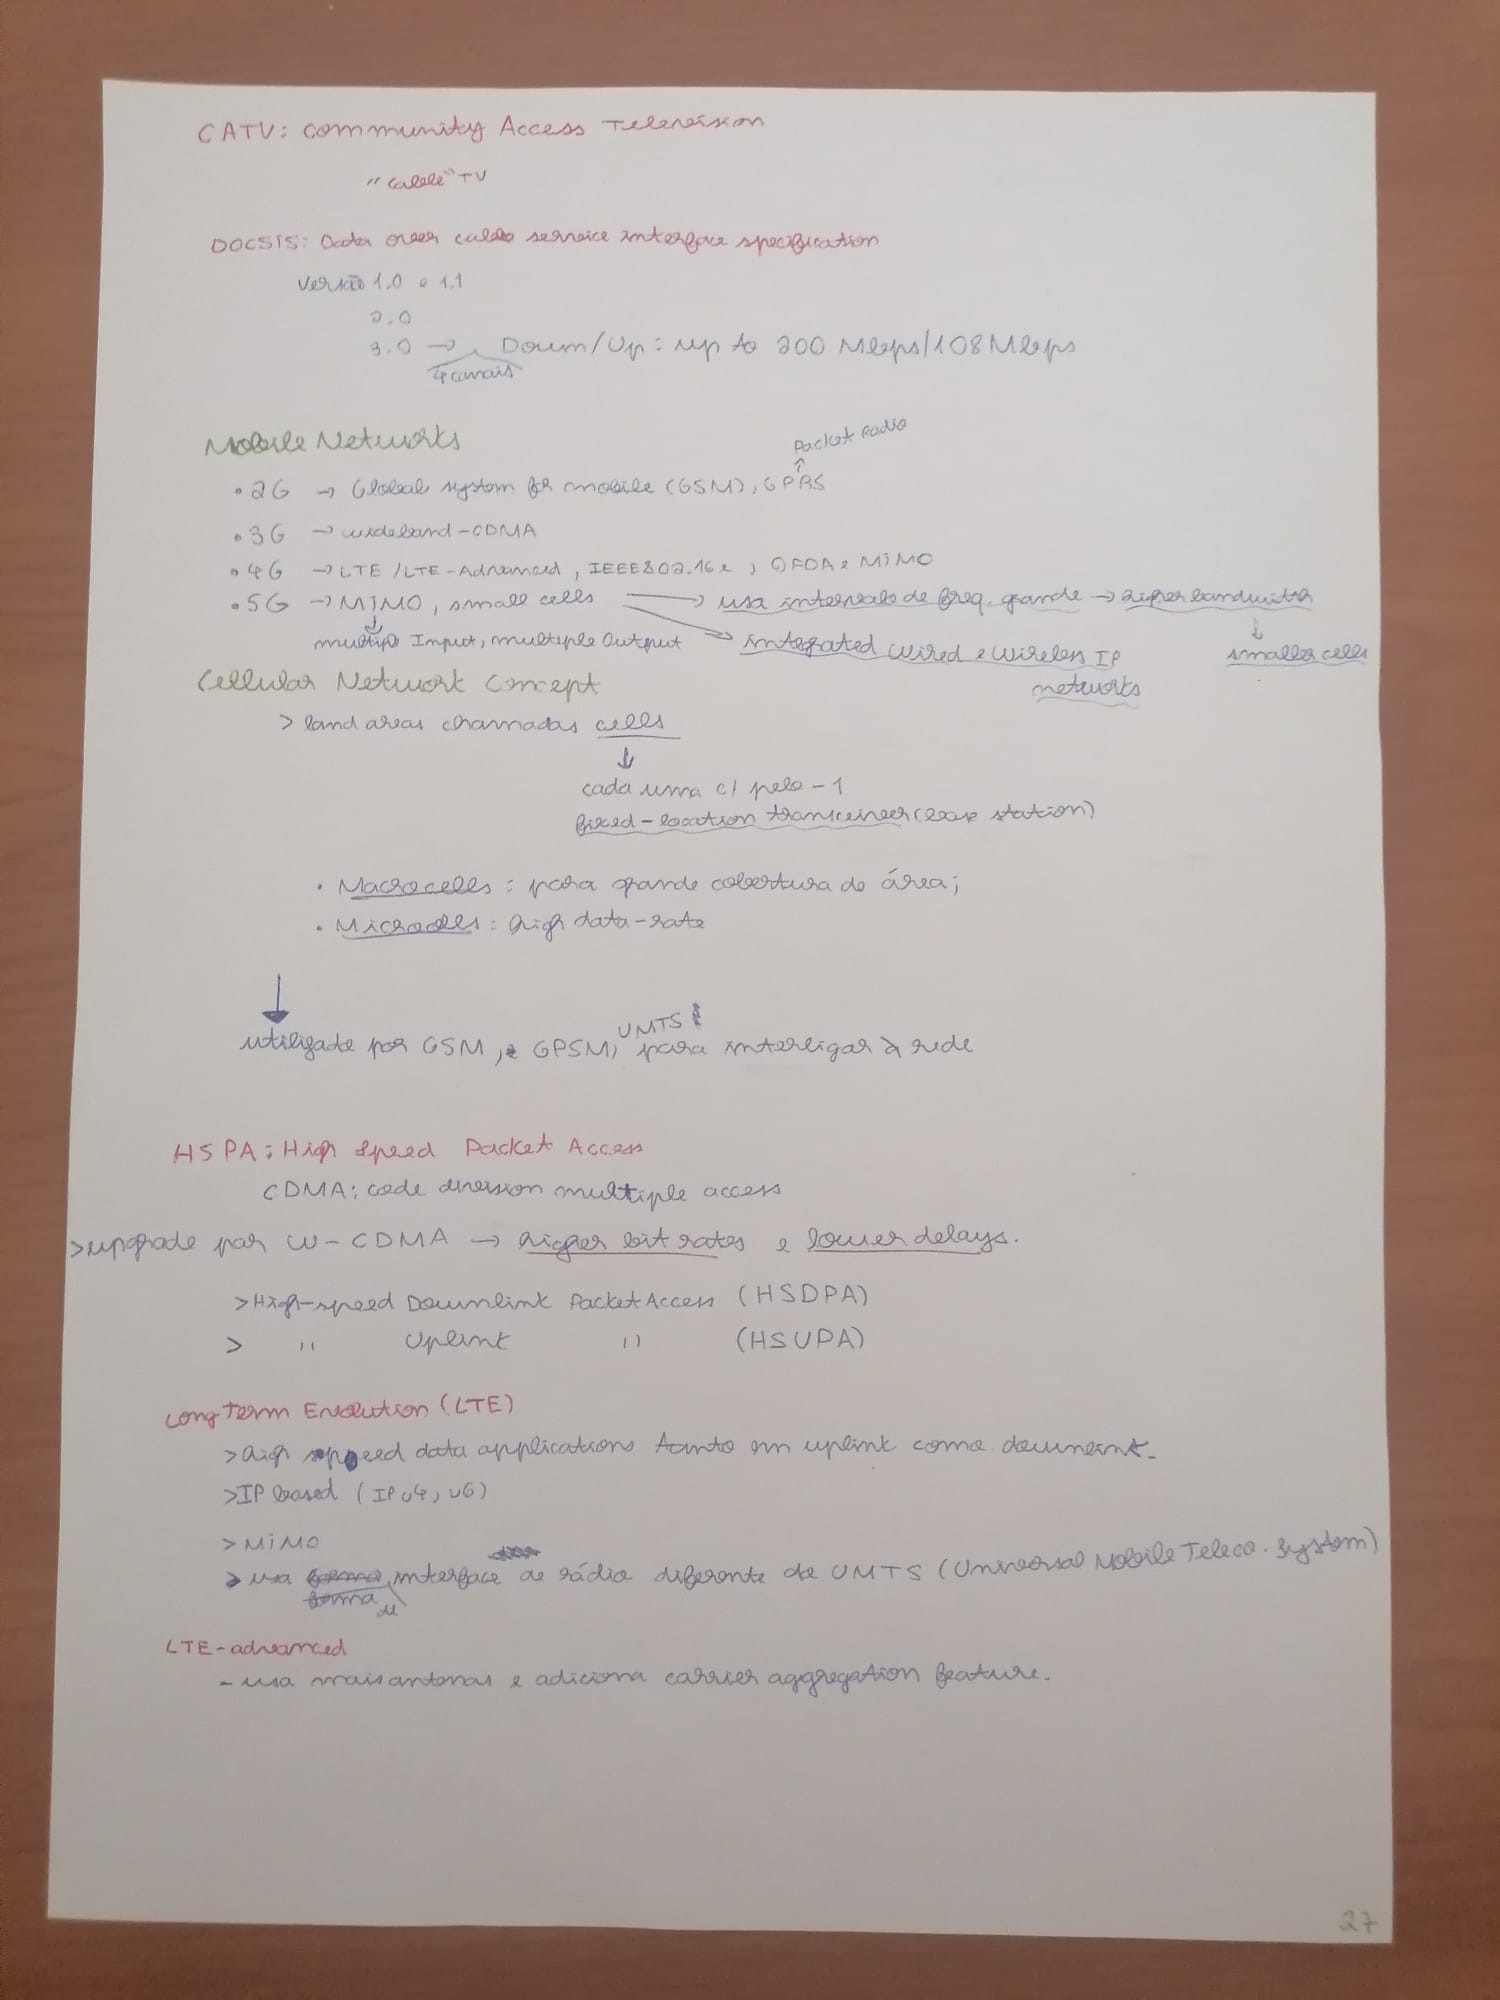 CATV: Community Access Television
"cable" TV
DOCSIS: Data over cable service interface specification
Versão 1.0 e 1.1
2.0
3.0 → Down/Up: up to 200 Mbps/108 Mbps
4 canais
Mobile Networks
Packet Radio
↑
• 2G → Global system for mobile (GSM), GPRS
• 3G → wideband-CDMA
• 4G → LTE/LTE-Advanced, IEEE802.16e, OFDA e MiMO
• 5G → MiMO, small cells → usa intervalo de freq. grande → higher bandwidth
↓
multiple Input, multiple Output → integrated wired e wireless IP networks
↓
smaller cells
Cellular Network Concept
> land areas chamadas cells
↓
cada uma c/ pelo - 1
fixed-location transceiver (base station)
• Macrocells: para grande cobertura de área;
• Microcells: high data-rate
↓
utilizado por GSM, e GPSM, UMTS para interligar à rede
HSPA: High Speed Packet Access
CDMA: code division multiple access
> upgrade par W-CDMA → higher bit rates e lower delays.
> High-speed Downlink Packet Access (HSDPA)
> " Uplink " (HSUPA)
Long Term Evolution (LTE)
> high speed data applications tanto em uplink como downlink.
> IP based (IPv4, v6)
> MiMO
> usa interface de rádio diferente de UMTS (Universal Mobile Teleco. System)
LTE-advanced
- usa mais antenas e adiciona carrier aggregation feature.
27